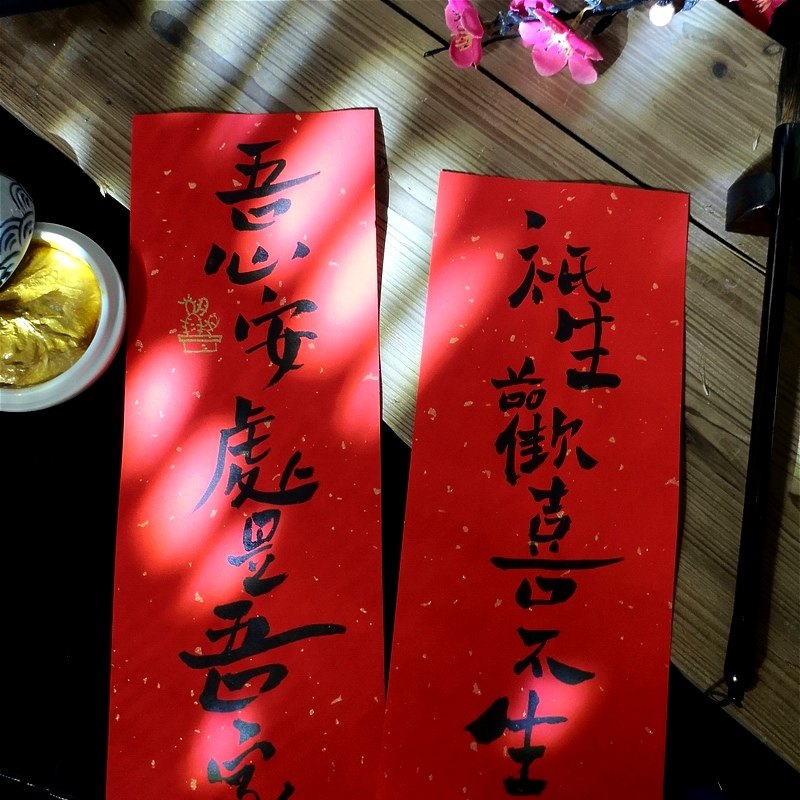 祇生歡喜不生
吾心安處是吾家